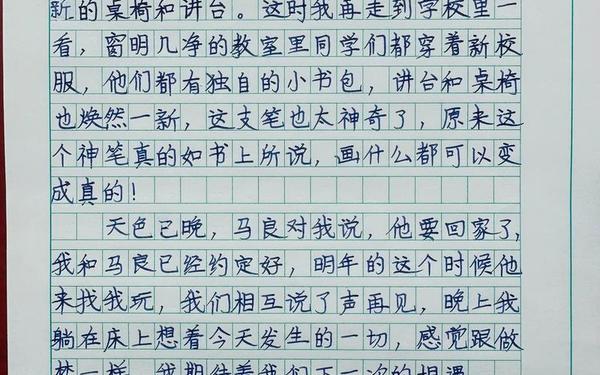 新的桌椅和讲台。这时我再走到学校里一
看，窗明几净的教室里同学们都穿着新校
服，他们都有独自的小书包，讲台和桌椅
也焕然一新，这支笔也太神奇了，原来这
个神笔真的如书上所说，画什么都可以变
成真的！
天色已晚，马良对我说，他要回家了，
我和马良已经约定好，明年的这个时候他
来找我玩，我们相互说了声再见，晚上我
躺在床上想着今天发生的一切，感觉跟做
梦一样，我期待着我们下一次的相遇